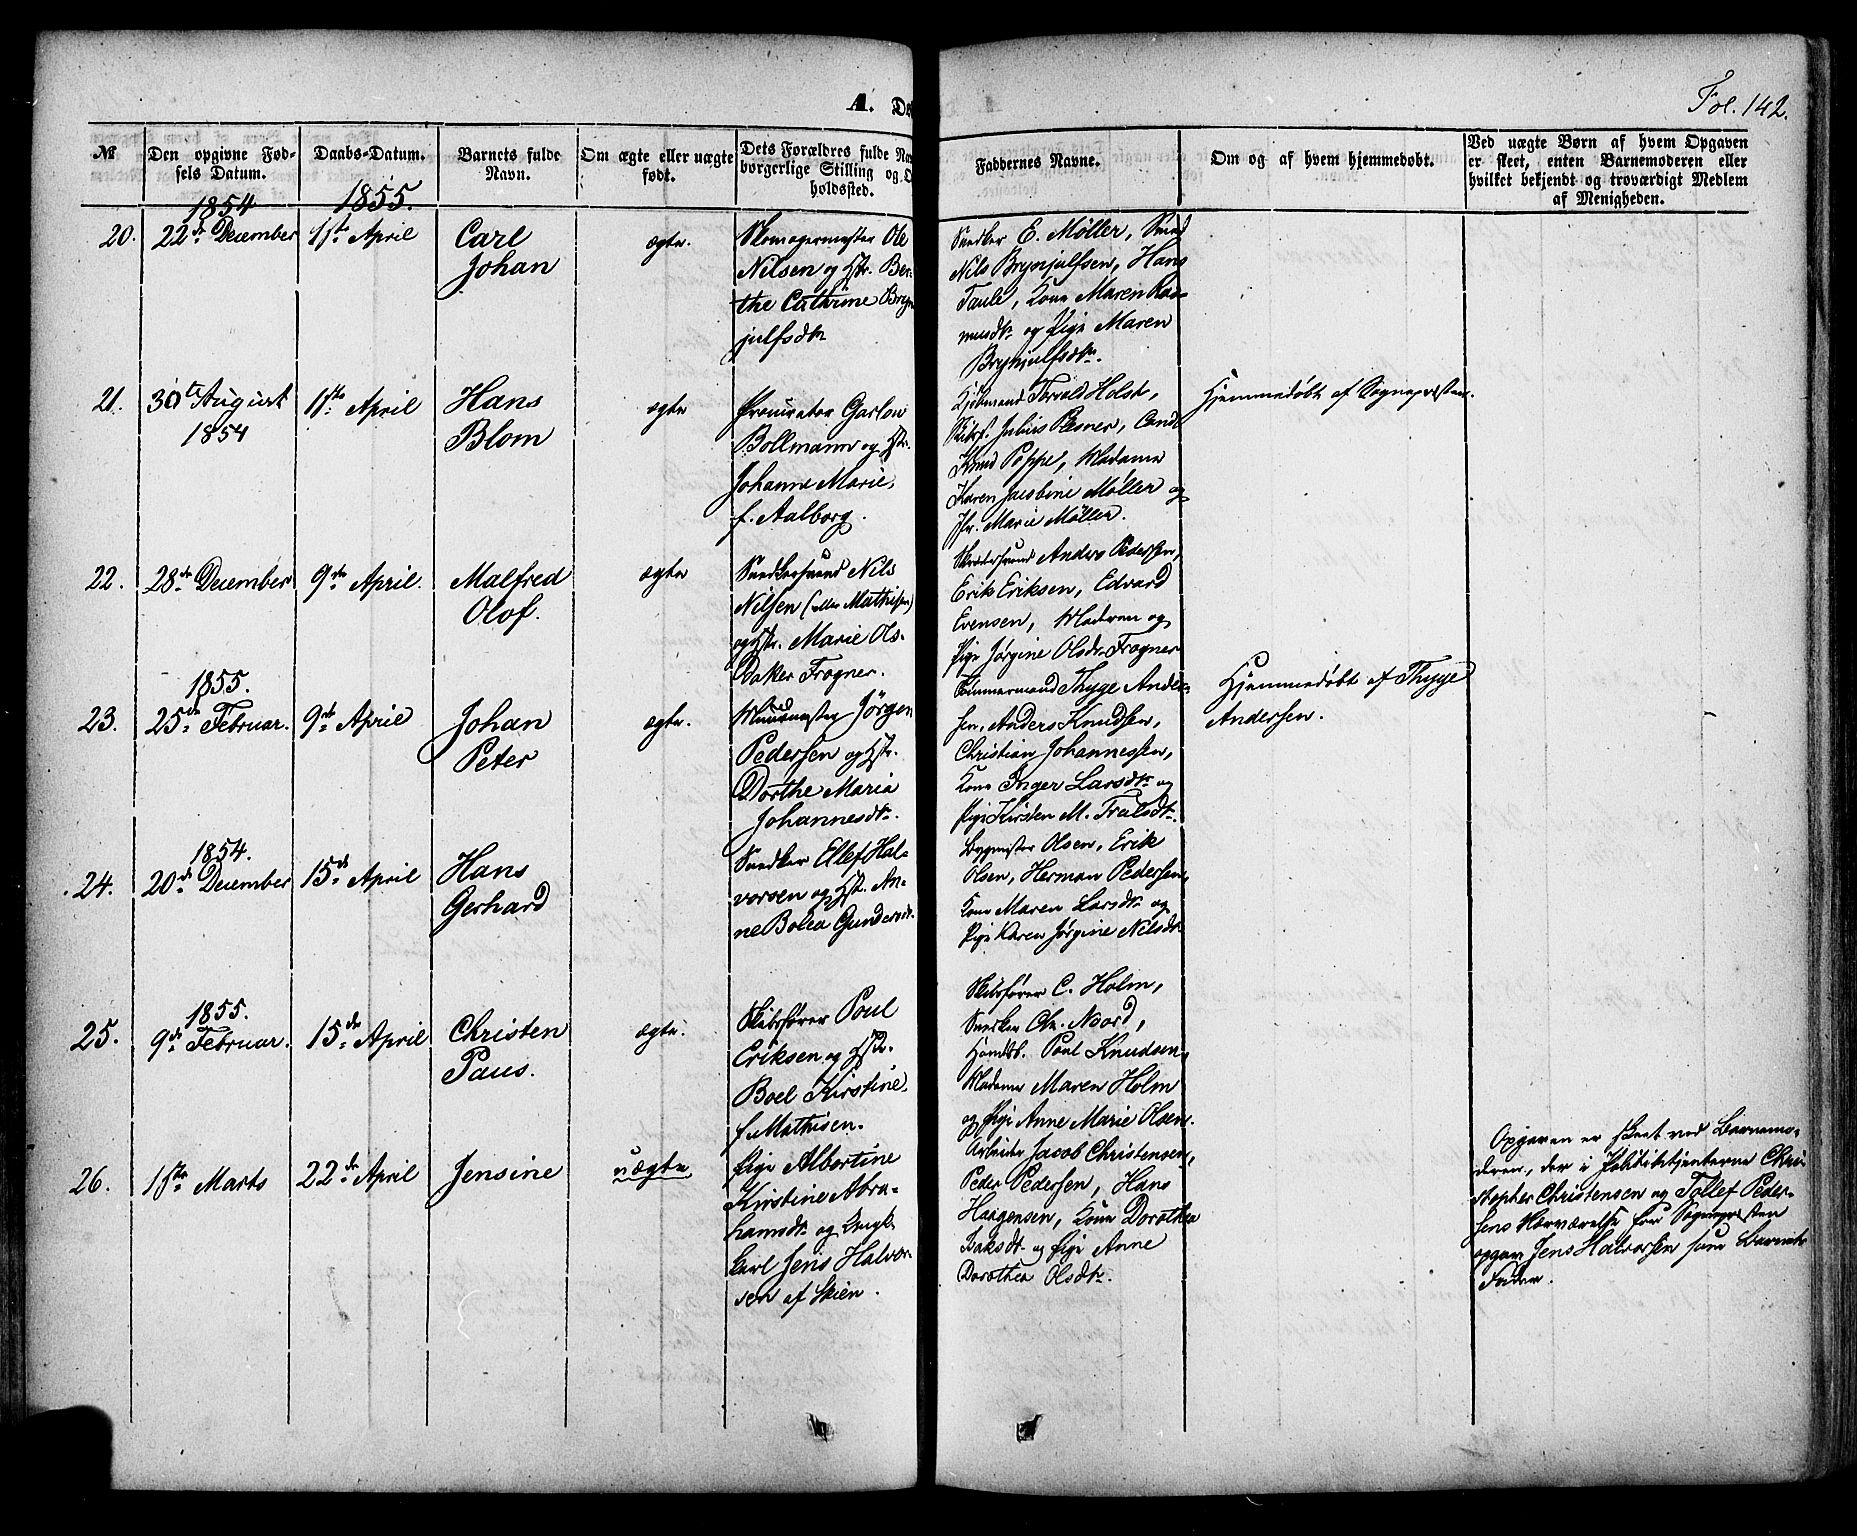 A. Dø
Fol. 142.
№
Den opgivne Fød-
sels Datum.
Daabs-Datum.
Barnets fulde
Navn.
Om ægte eller uægte
født.
Dets Forældres fulde Nav
borgerlige Stilling og O
holdssted.
Faddernes Navne.
Om og af hvem hjemmedøbt.
Ved uægte Børn af hvem Opgaven
er skeet, enten Barnemoderen eller
hvilket bekjendt og troværdigt Medlem
af Menigheden.
1854
1855.
20.
22de December
1ste April
Carl
Johan
ægte.
Skomagermester Ole
Nilsen og Hstr. Ber-
the Cathrine Bryn
julfsdtr
Snedker E. Møller, Smed
Nils Brynjulfsen, Hans
Taule, Kone Maren Ras-
musdtr og Pige Maren
Brynjulfsdtr.
21.
30te August
1854
1ste April
Hans
Blom
ægte
Procurator Carl
Bollmann og Hstr.
Johanne Marie,
f. Aalborg.
Kjøbmand Torvald Holst,
Skibsf. Julius Plesner, Cand.
Knud Poppe, Madame
Karen Jacobine Møller og
Jfr. Marie Møller.
Hjemmedøbt af Sognepræsten.
22.
28de December
9de April
Malfred
Olof.
ægte
Snedkersvend Nils
Nilsen (eller Mathisen)
og Hstr. Marie Ols-
Daker Frogner.
Skrædersvend Anders Pedersen,
Erik Eriksen, Edvard
Evensen, Moderen og
Pige Jørgine Olsdtr Frogner
1855.
23.
25de Februar.
9de April
Johan
Peter
ægte.
Jørgen
Pedersen og Hstr.
Dorthe Maria
Johannesdtr.
Tømmermand Thyge Ander-
sen, Anders Knudsen,
Christian Johannessen,
Kone Inger Larsdtr og
Pige Kirsten M. Trulsdtr.
Hjemmedøbt af Thyge
Andersen.
1854.
24.
20de December
15de April
Hans
Gerhard
Snedker Ellef Hal-
vorsen og Hstr. An-
ne Bolea Gundersdtr.
Bygmester Olsen, Erik
Olsen, Herman Pedersen,
Kone Maren Larsdtr og
Pige Karen Jørgine Nilsdtr
1855.
25.
9de Februar.
15de April
Christen
Paus.
ægte.
Skibsfører Poul
Eriksen og Hstr.
Boel Kirstine,
f. Mathisen.
Skibsfører C. Holm,
Snedker Chr. Noord,
Handelsb. Poul Knudsen,
Madame Maren Holm
og Pige Anne Marie Olsen.
26.
15de Marts
22de April
Jensine
uægte
Pige Albertine
Kirstine Abra-
hamsdtr og Ungk
karl Jens Halvor-
sen af Skien.
Arbeider Jacob Christensen,
Peder Pedersen, Hans
Haagensen, Kone Dorothea
Isaksdtr og Pige Anne
Dorothea Olsdtr.
Opgaven er skeet ved Barnemo-
deren, der i Politibetjenterne Chri-
stopher Christensen og Tollef Peder-
sens Nærværelse for Sognepræsten
opgav Jens Halvorsen som Barnets
Fader.